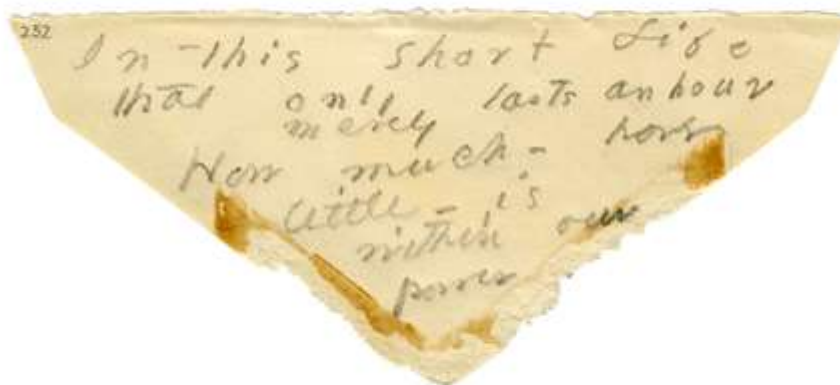 232
In this short Life
that only lasts an hour
merely
How much - how
little - is
within our
power